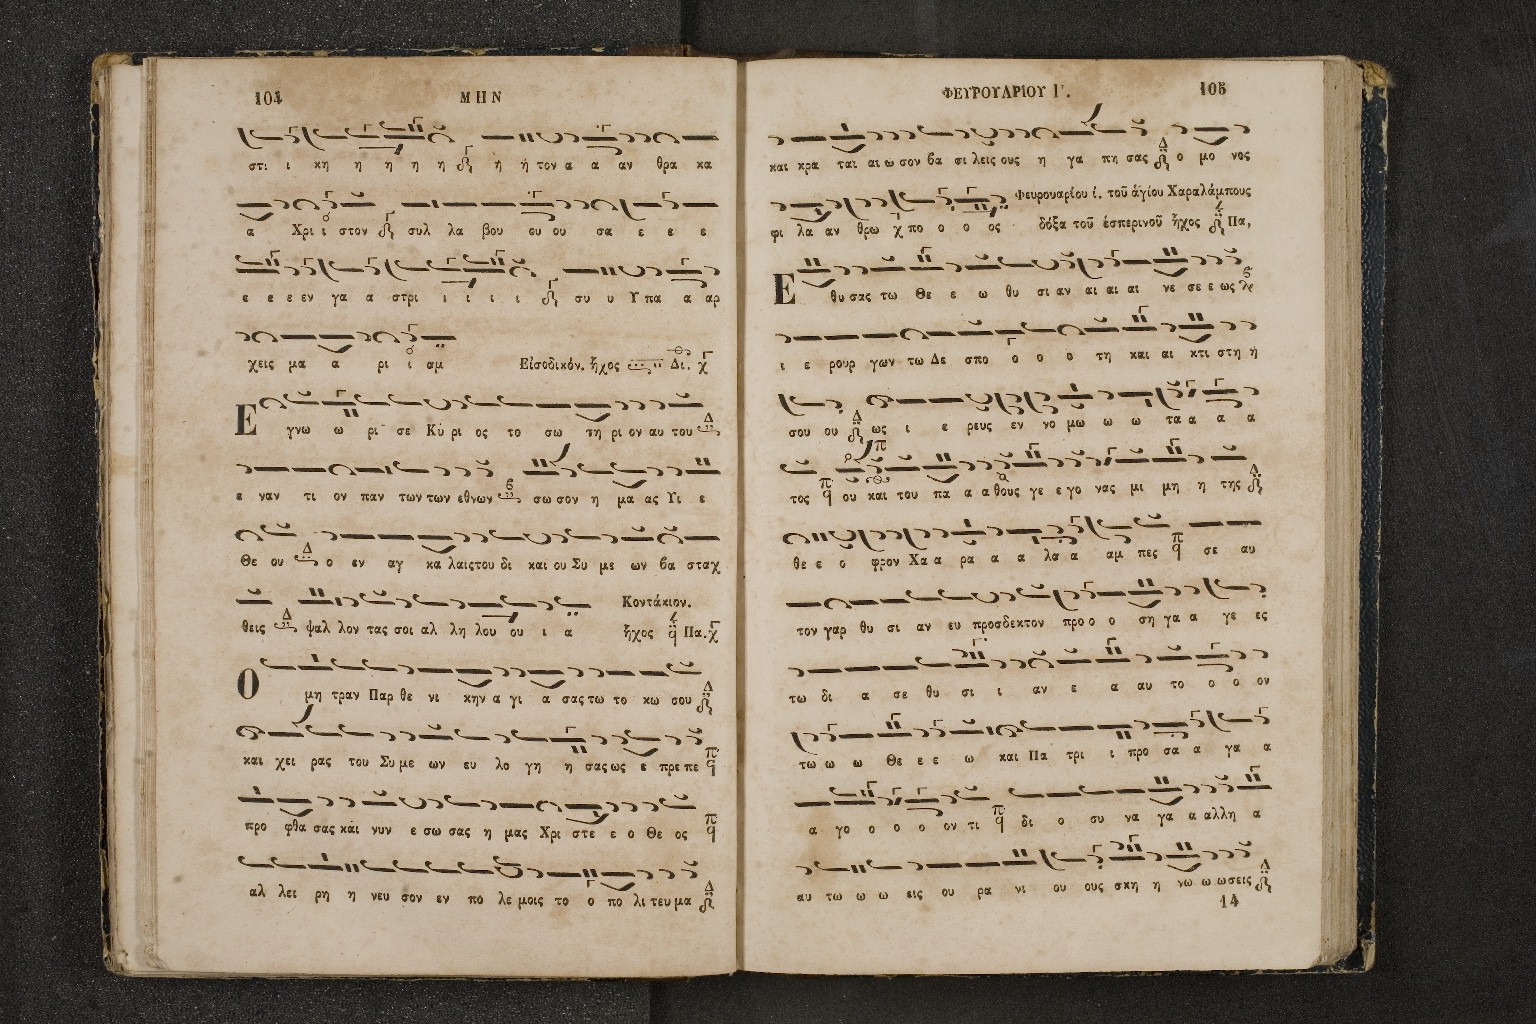 104 ΜΗΝ
στι ι κη η η η η ή ή τον α α αν θρα κα
α Χρι ι στον συλ λα βου ου ου σα ε ε ε
ε ε ε εν γα α στρι ι ι ι ι συ υ Υ πα α αρ
χεις μα α ρι ι αμ Εἰσοδικόν. ἦχος Δι.
Ε γνω ω ρι σε Κύ ρι ος το σω τη ρι ον αυ του
ε ναν τι ον παν των των εθνων σω σον η μα ας Υι ε
Θε ου ο εν αγ κα λαις του δι και ου Συ με ων βα σταχ
θεις ψαλ λον τας σοι αλ λη λου ου ι α Κοντάκιον. ἦχος Πα.
Ο μη τραν Παρ θε νι κην α γι α σας τω το κω σου
και χει ρας του Συ με ων ευ λο γη η σας ως ε πρε πε
προ φθα σας και νυν ε σω σας η μας Χρι στε ε ο Θε ος
αλ λει ρη η νευ σον εν πο λε μοις το ο πο λι τευ μα
ΦΕΥΡΟΥΑΡΙΟΥ Ι'. 105
και κρα ται αι ω σον βα σι λεις ους η γα πη σας ο μο νος
φι λα αν θρω πο ο ο ος Φευρουαρίου ί. τοῦ ἁγίου Χαραλάμπους
δόξα τοῦ ἑσπερινοῦ ἦχος Πα,
Ε θυ σας τω Θε ε ω θυ σι αν αι αι αι νε σε ε ως
ι ε ρουρ γων τω Δε σπο ο ο ο τη και αι κτι στη ή
σου ου ως ι ε ρευς εν νο μω ω ω τα α α α
τος ου και του πα α α θους γε ε γο νας μι μη η της
θε ε ο φρον Χα α ρα α α λα α αμ πες σε αυ
τον γαρ θυ σι αν ευ προσδεκτον προ ο ο ση γα α γε ες
τω δι α σε θυ σι ι αν ε α αυ το ο ο ον
τω ω ω Θε ε ε ω και Πα τρι ι προ σα α γα α
α γο ο ο ο ον τι δι ο συ να γα α αλλη α
αυ τω ω ω εις ου ρα νι ου ους σκη η νω ω ωσεις
14